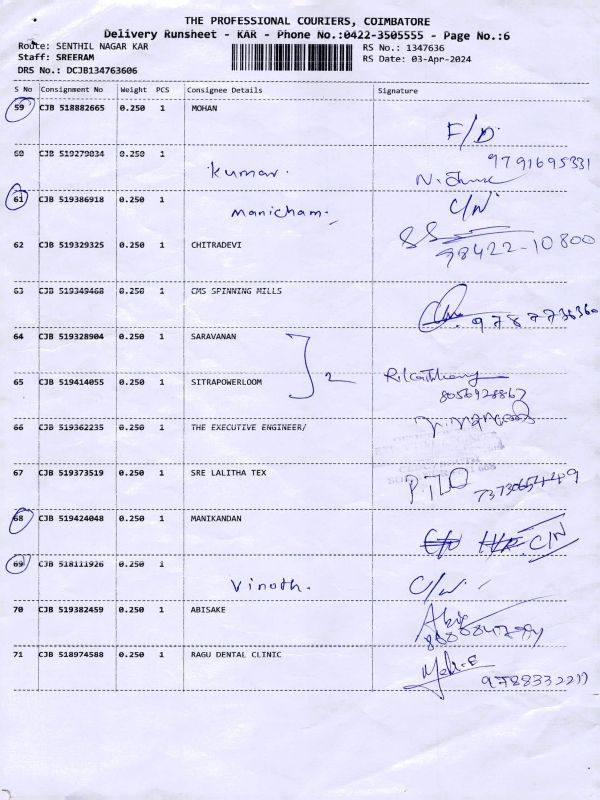 THE PROFESSIONAL COURIERS, COIMBATORE
Delivery Runsheet - KAR - Phone No.:0422-3505555 - Page No.:6
Route: SENTHIL NAGAR KAR RS No.: 1347636
Staff: SREERAM RS Date: 03-Apr-2024
DRS No.: DCJB134763606
S No Consignment No Weight PCS Consignee Details Signature
59 CJB 518882665 0.250 1 MOHAN F/D.
60 CJB 519279034 0.250 1 kumar. 9791695331
61 CJB 519386918 0.250 1 manicham. C/N
62 CJB 519329325 0.250 1 CHITRADEVI 98422-10800
63 CJB 519349468 0.250 1 CMS SPINNING MILLS
64 CJB 519328904 0.250 1 SARAVANAN 2
65 CJB 519414055 0.250 1 SITRAPOWERLOOM 8056928867
66 CJB 519362235 0.250 1 THE EXECUTIVE ENGINEER/
67 CJB 519373519 0.250 1 SRE LALITHA TEX
68 CJB 519424048 0.250 1 MANIKANDAN C/N
69 CJB 518111926 0.250 1 Vinoth. C/N.
70 CJB 519382459 0.250 1 ABISAKE
71 CJB 518974588 0.250 1 RAGU DENTAL CLINIC